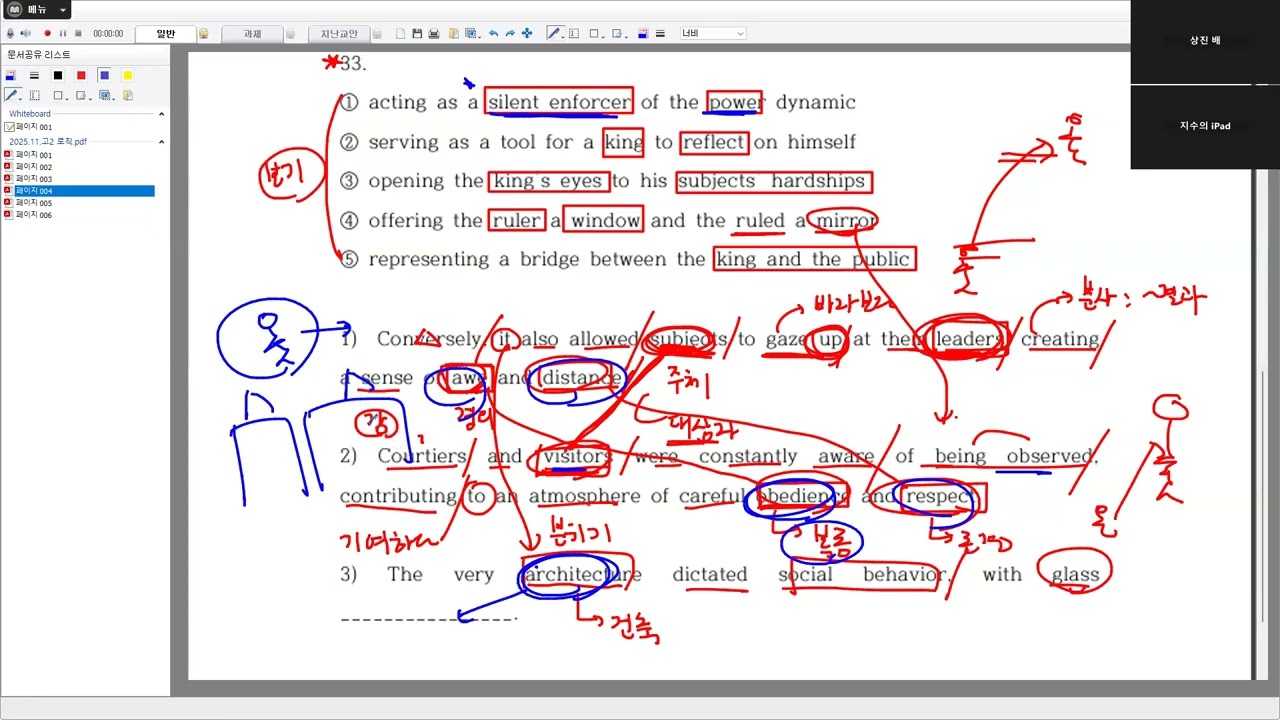 메뉴
00:00:00
일반
과제
지난교안
너비
상진 배
지수의 iPad
문서공유 리스트
Whiteboard
페이지 001
2025.11.고2 로직.pdf
페이지 001
페이지 002
페이지 003
페이지 004
페이지 005
페이지 006
*33.
① acting as a silent enforcer of the power dynamic
② serving as a tool for a king to reflect on himself
③ opening the king's eyes to his subjects hardships
④ offering the ruler a window and the ruled a mirror
⑤ representing a bridge between the king and the public
보기
바라보다
분사 : ~결과
1) Conversely, it also allowed subjects to gaze up at their leaders, creating
a sense of awe and distance.
주체
경외
대상과
2) Courtiers and visitors were constantly aware of being observed,
contributing to an atmosphere of careful obedience and respect.
기여하다
분위기
복종
존경
3) The very architecture dictated social behavior, with glass
건축